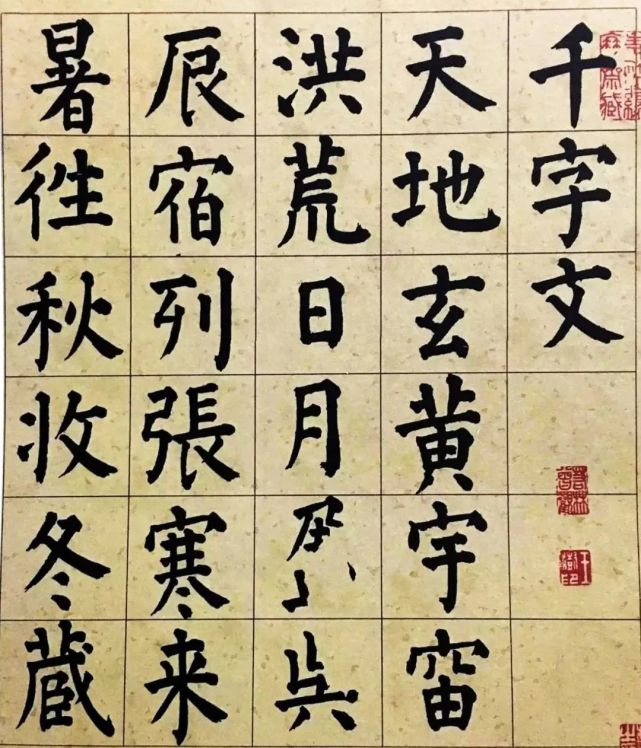 千字文
天地玄黄宇
洪荒日月
辰宿列張寒来
暑徃秋收冬藏